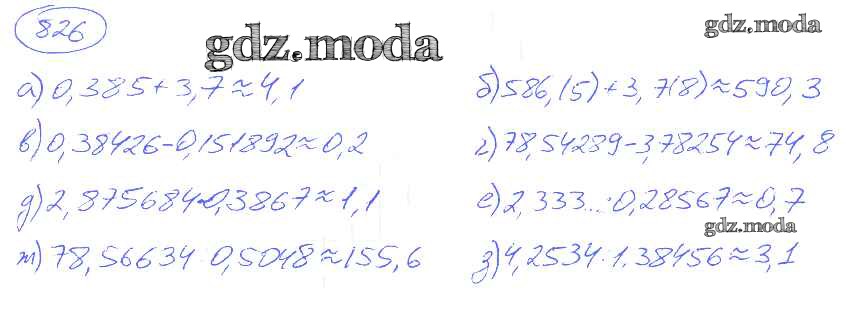 826
gdz.moda
gdz.moda
а) 0,385 + 3,7 ≈ 4,1
б) 586,(5) + 3,7(8) ≈ 590,3
в) 0,38426 - 0,151892 ≈ 0,2
г) 78,54289 - 3,78254 ≈ 74,8
д) 2,875684 · 0,3867 ≈ 1,1
е) 2,333... · 0,28567 ≈ 0,7
gdz.moda
ж) 78,56634 : 0,5048 ≈ 155,6
з) 4,2534 : 1,38456 ≈ 3,1